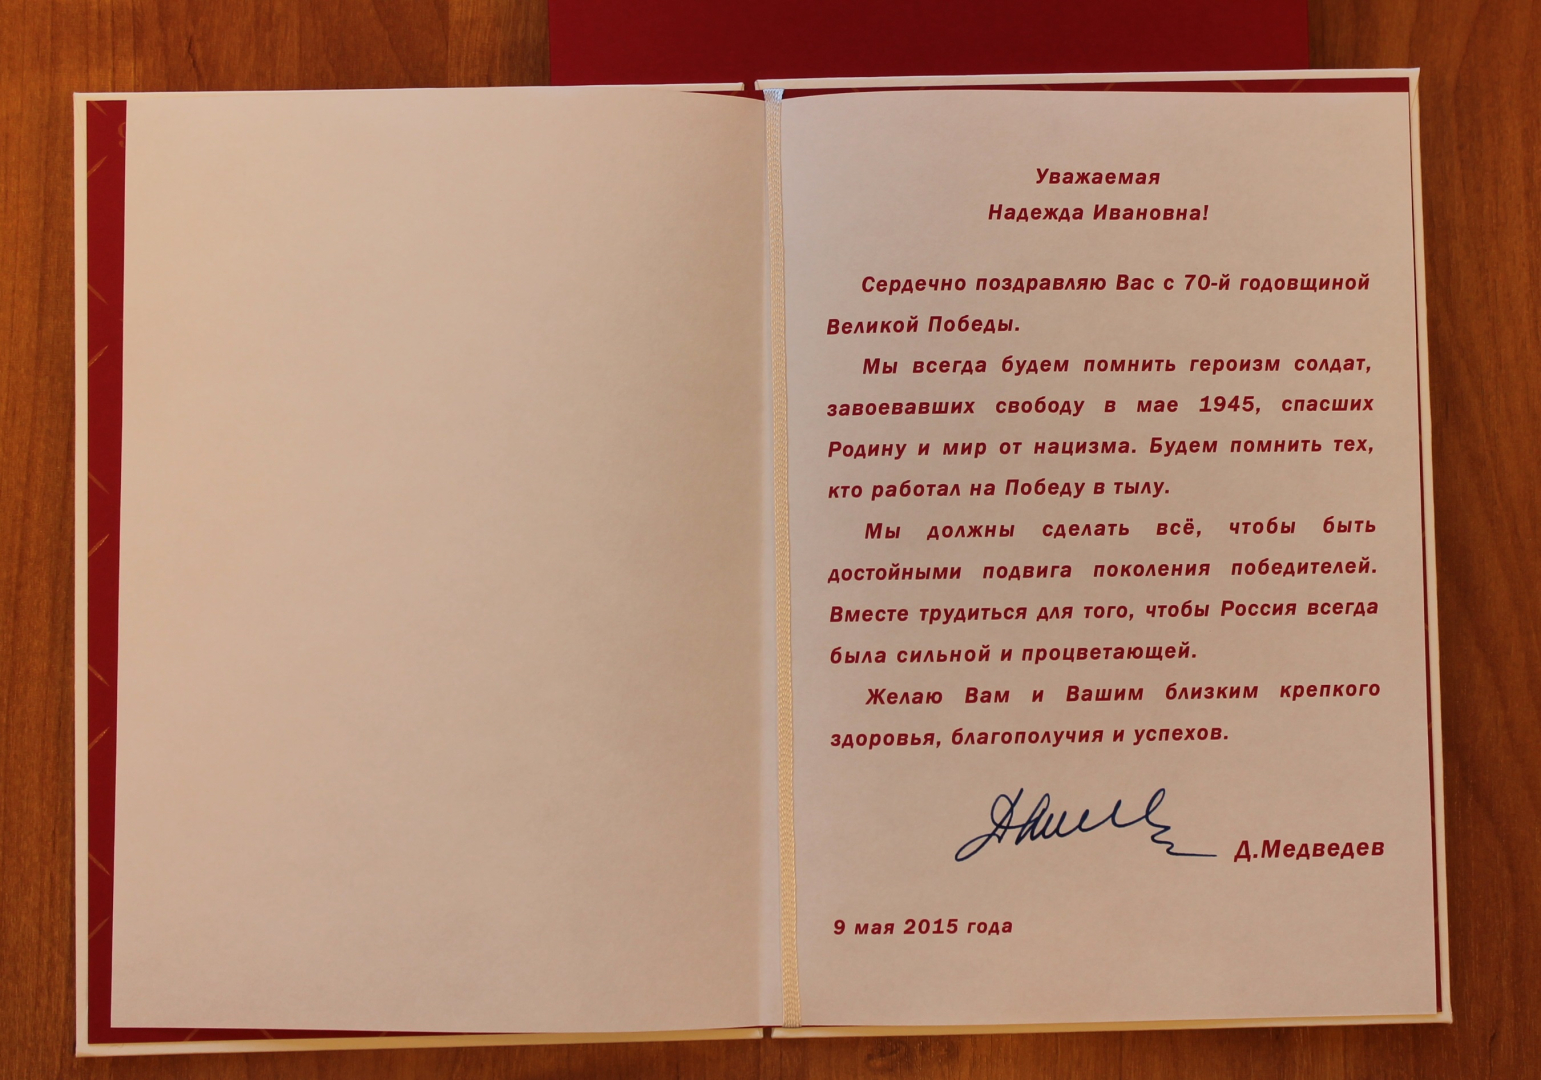 Уважаемая
Надежда Ивановна!
Сердечно поздравляю Вас с 70-й годовщиной
Великой Победы.
Мы всегда будем помнить героизм солдат,
завоевавших свободу в мае 1945, спасших
Родину и мир от нацизма. Будем помнить тех,
кто работал на Победу в тылу.
Мы должны сделать всё, чтобы быть
достойными подвига поколения победителей.
Вместе трудиться для того, чтобы Россия всегда
была сильной и процветающей.
Желаю Вам и Вашим близким крепкого
здоровья, благополучия и успехов.
Д.Медведев
9 мая 2015 года